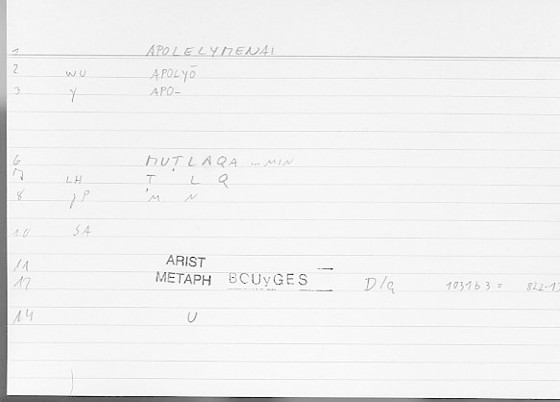 1 APOLELYMENAI
2 WU APOLYŌ
3 Y APO-
6 MUṬLAQA ... MIN
7 LH Ṭ L Q
8 JP 'M N
10 SA
11 ARIST
12 METAPH BCUyGES D/q 1031b3 =
14 U